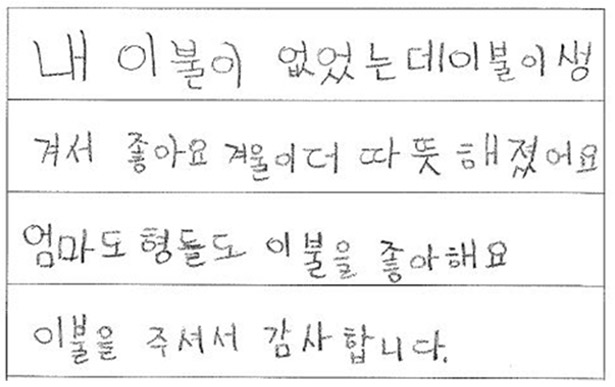 내 이불이 없었는데이불이생
겨서 좋아요 겨울이더 따뜻해졌어요
엄마도 형들도 이불을 좋아해요
이불을 주셔서 감사합니다.